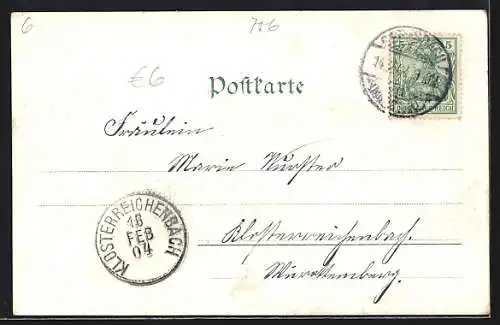 6
726
€6
5
REICH
Postkarte
Fräulein
Marie Wurster
KLOSTERREICHENBACH
16
FEB
04
Klosterreichenbach.
Württemberg.